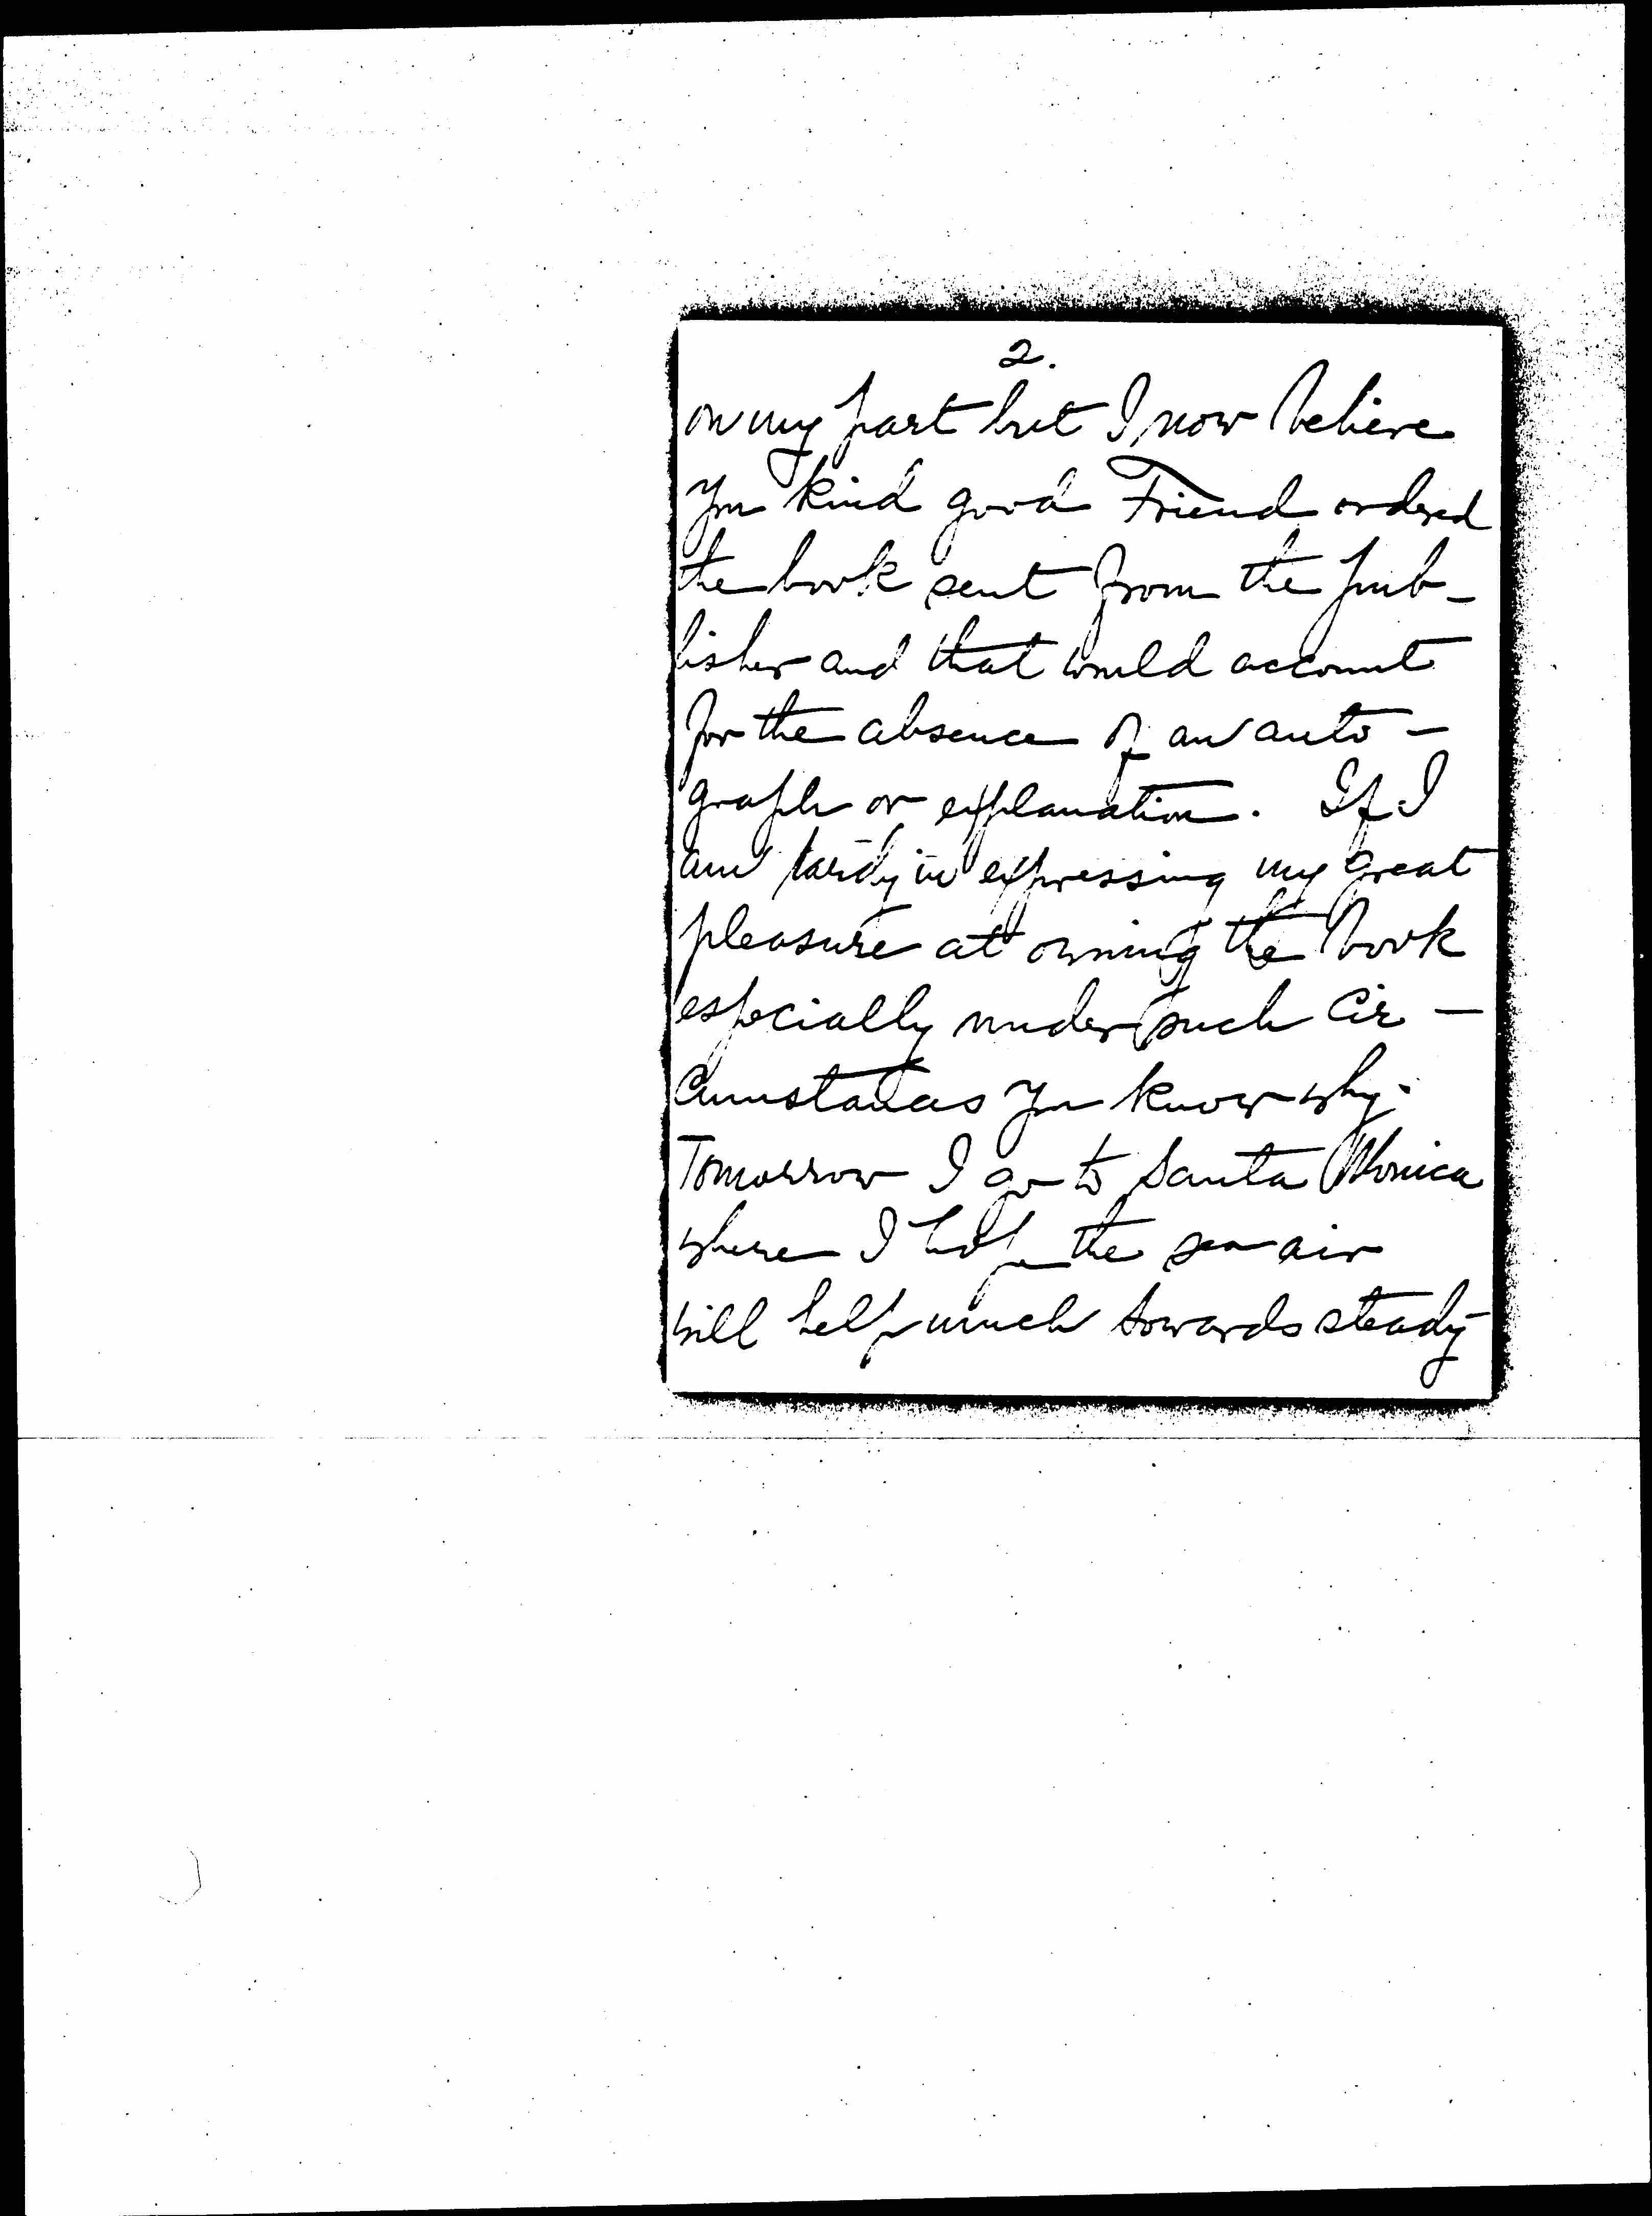 2.
on my part but I now believe
you kind good Friend ordered
the book sent from the pub-
lisher and that would account
for the absence of an auto-
graph or explanation. If I
am tardy in expressing my great
pleasure at owning the book
especially under such cir-
cumstances you know why.
Tomorrow I go to Santa Monica
where I hope the sea air
will help much towards steady